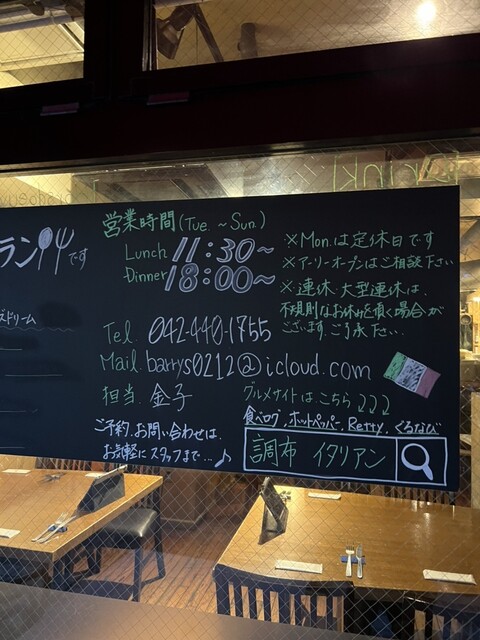 ランです
営業時間(Tue.~Sun.)
Lunch 11:30~
Dinner 18:00~
※Mon.は定休日です
※アーリーオープンはご相談下さい
※連休、大型連休は、
不規則なお休みを頂く場合が
ございます。ご了承下さい.
Tel. 042-440-1755
Mail. barrys0212@icloud.com
担当. 金子
グルメサイトはこちら
食べログ、ホットペッパー、Retty、ぐるなび
調布 イタリアン
ご予約、お問い合わせは、
お気軽にスタッフまで...♪